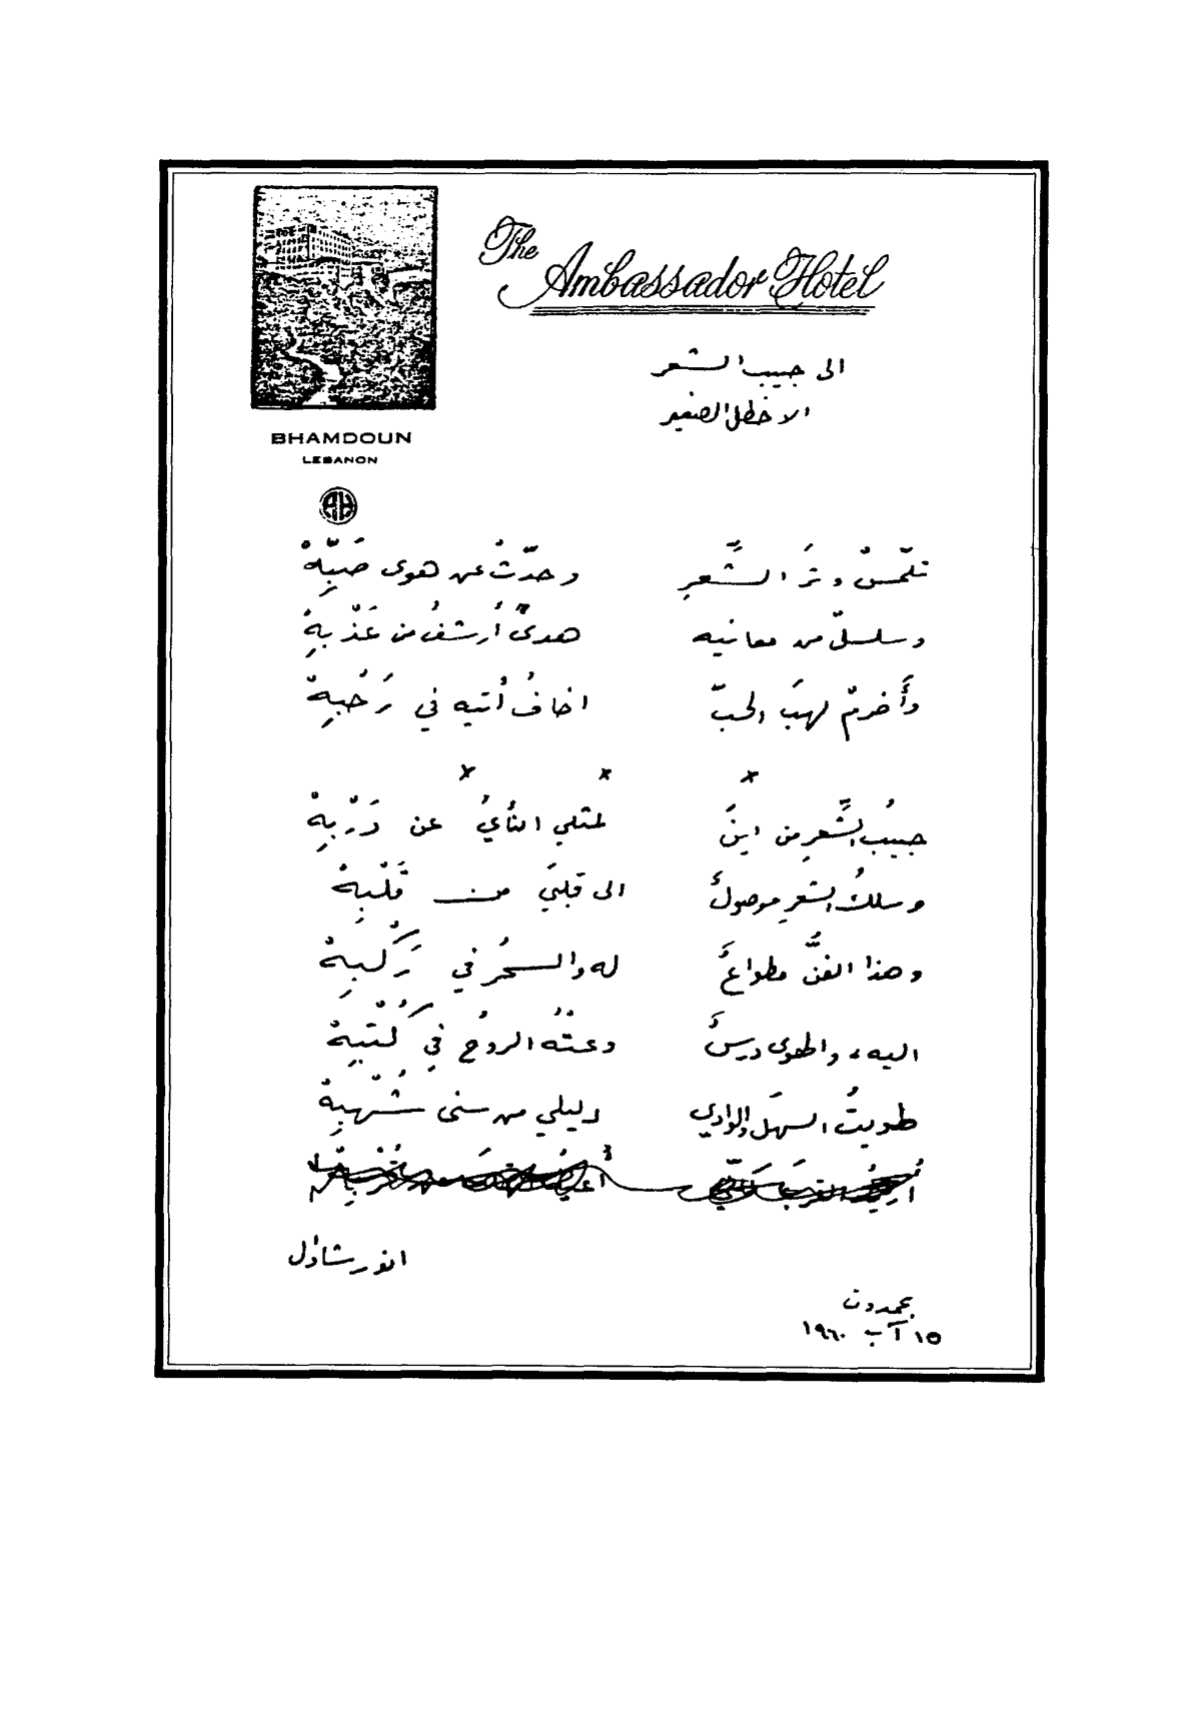 The Ambassador Hotel
BHAMDOUN
LEBANON
AH
الى حبيب الشعر
الاخطل الصغير
تلمّسْ وترَ الشِّعرِ وحدّثْ عن هوى صَبِّهْ
وسلسلْ من معانيه هدىً أرشفُ من عَذْبِهْ
وأَضرمْ لهبَ الحبّ اخافُ أتيه في رَحْبِهْ
× × ×
حبيبُ الشِّعرِ من اينَ لمثلي النأيُ عن دَرْبِهْ
وسلكُ الشعرِ موصولٌ الى قلبيَ من قَلْبِهْ
وهذا الفنُّ مطواعٌ له والسحرُ في رَكْبِهْ
اليه، والهوى درسٌ وعتْهُ الروحُ في كُتْبِهْ
طويتُ السهلَ والوادي دليلي من سنى شُهْبِهْ
انور شاؤل
بحمدون
١٥ آب ١٩٦٠